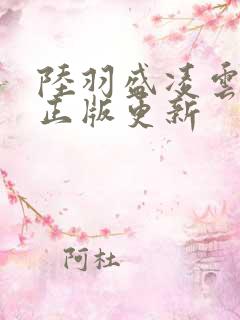 陸羽盛凌雲
正版更新
阿杜